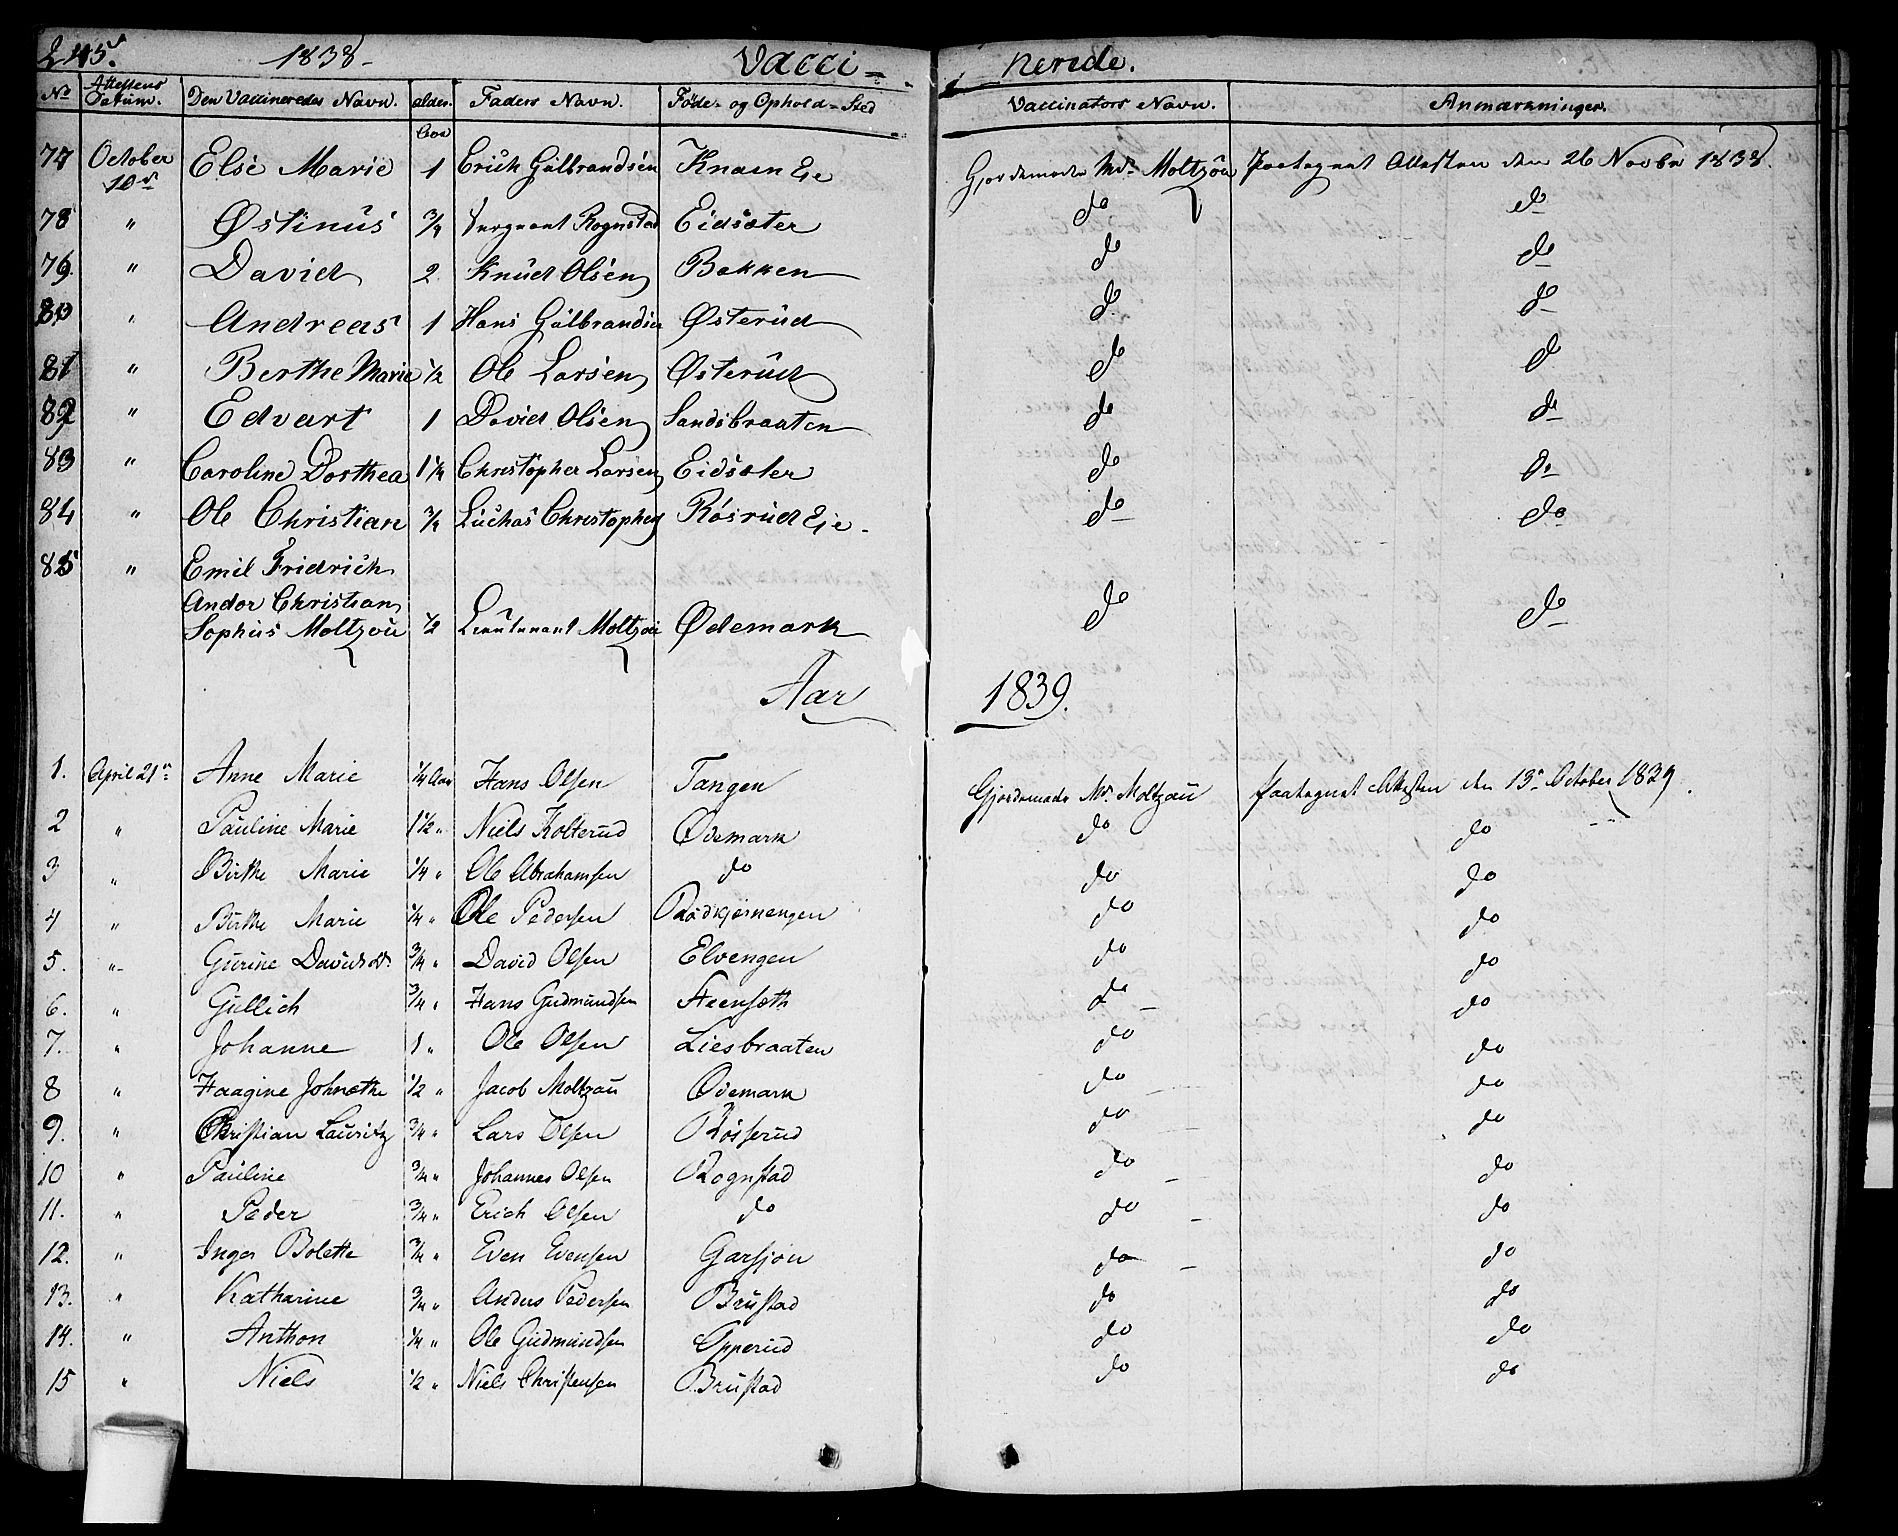 245. 1838 Vacci- nerede.
No Attestens Datum. Den Vaccineredes Navn. alder. Faders Navn. Føde- og Ophold-Sted Vaccinators Navn. Anmærkninger.
77 October 10de Else Marie 1 Erich Gulbrandsen Knaen Eie Gjordemoder Md. Moltzau Paategnet Attesten den 26 Novbr 1838.
78 " Østinus 3/4 Sergeant Rognstad Eidsæter do do
79. " David 2 Knud Olsen Bakken do do
80 " Andreas 1 Hans Gulbrandsen Østerud do do
81 " Berthe Marie 1/2 Ole Larsen Østerud do do
82 " Edvart 1 David Olsen Sandsbraaten do do
83 " Caroline Dorthea 1 1/4 Christopher Larsen Eidsæter do do
84 " Ole Christian 3/4 Luchas Christophers Røsrud Eje do do
85 " Emil Fridrich
Andor Christian
Sophus Moltzau 1/2 Lieutenant Moltzau Ødemark do do
Aar 1839.
1. April 21de Anne Marie 1/4 Aar Hans Olsen Tangen Gjordemoder Md. Moltzau Paategnet Attesten den 13de October 1839.
2 " Pauline Marie 1 1/2 " Niels Kolterud Ødemark do do
3 " Birthe Marie 1/4 " Ole Abrahamsen do do do
4 " Birthe Marie 1/4 " Ole Pedersen Rødkjernengen do do
5. " Gurine Davidsd. 3/4 " David Olsen Elvengen do do
6. " Gullich 3/4 " Hans Gudmundsen Steensæth do do
7. " Johanne 1 " Ole Olsen Liesbraaten do do
8 " Haagine Johnethe 1/2 " Jacob Moltzau Ødemark do do
9. " Christian Lauritz 3/4 " Lars Olsen Røsserud do do
10 " Pauline 3/4 " Johannes Olsen Rognstad do do
11. " Peder 3/4 " Erich Olsen do do do
12. " Inger Bolette 3/4 " Even Evensen Garsjøn do do
13. " Katharine 3/4 " Anders Pedersen Brustad do do
14. " Anthon 1/4 " Ole Gudmundsen Opperud do do
15 " Niels 1/2 " Niels Christensen Brustad do do